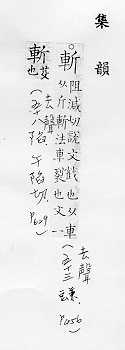 集韻
斬 阻減切說文截也从車
从斤斬法車裂也文一
(去聲 五十三豏 P.456)
斬 芟也
(去聲 五十八陷 午陷切. P.629)